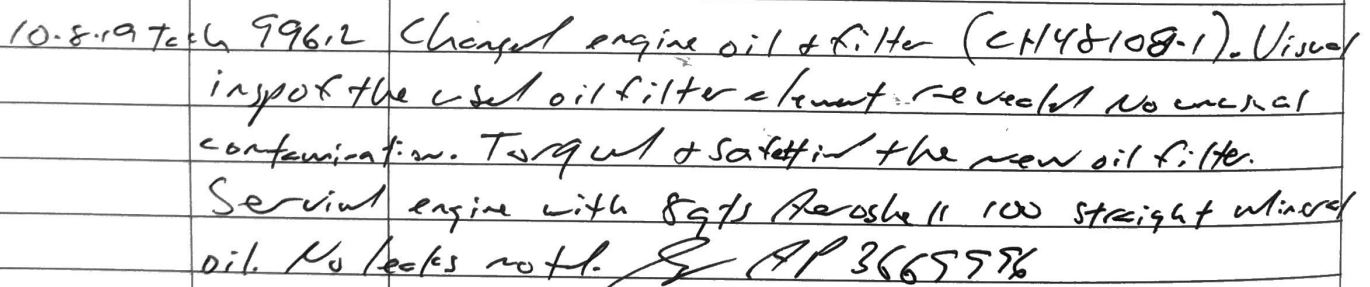 10.8.19 Tach 996.2 Changed engine oil & filter (CH48108-1). Visual
insp of the used oil filter element revealed No unusual
contamination. Torqued & safetied the new oil filter.
Serviced engine with 8qts Aeroshell 100 straight mineral
oil. No leaks noted. AP 3669996